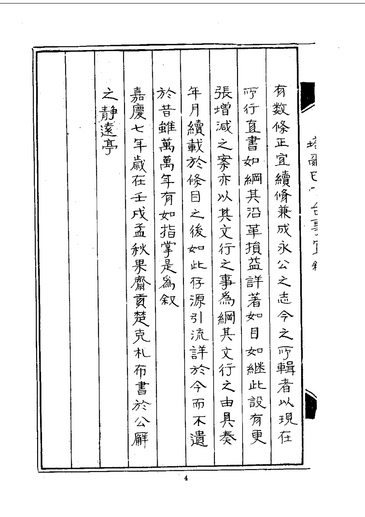 有数條正宜續脩兼成永公之志今之所輯者以現在
所行直書如綱其沿革損益詳著如目如継此設有更
張增減之案亦以其文行之事為綱其文行之由具奏
年月續載於條目之後如此仔源引流詳於今而不遺
於昔雖萬萬年有如指掌是為叙
嘉慶七年歲在壬戌孟秋果齋貢楚克札布書於公廨
之静遠亭
4